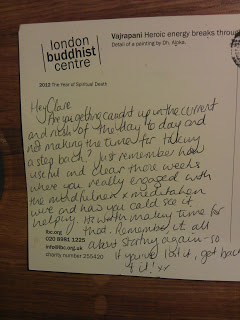 london
buddhist
centre
Vajrapani Heroic energy breaks throu
Detail of a painting by Dh. Aloka.
2012 The Year of Spiritual Death
Hey Clare
Are you getting caught up in the current
and rush of the day to day and
not making the time for taking
a step back? Just remember how
useful and clear these weeks
where you really engaged with
the mindfulness x meditation
were and how you could see it
helping. It's worth making time for
that. Remember it all
about starting again - so
if you've lost it, get back
to it! xx
lbc.org.uk
020 8981 1225
info@lbc.org.uk
charity number 255420